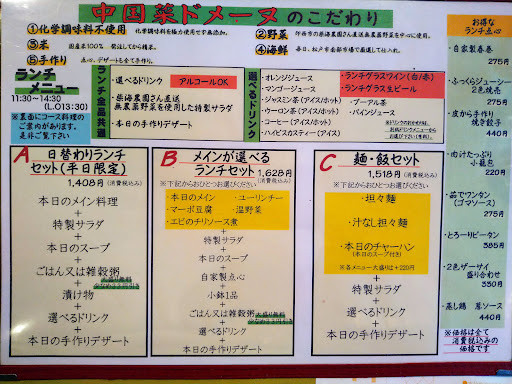 中国菜ドメーヌのこだわり
①化学調味料不使用
化学調味料を極力使用せず無添加。
②野菜
③米
国産米100% 発注してから精米。
④海鮮
毎日、松戸市金勝市場で厳選して仕入れ。
⑤手作り
点心、デザートも全て手作り。
ランチメニュー
11:30～14:30
(L.O13:30)
※裏面にコース料理の
ご案内があります。
是非ご覧下さい
ランチ全品共通
・選べるドリンク
アルコールOK
・柴海農園さん直送
無農薬野菜を使用した特製サラダ
・本日の手作りデザート
選べるドリンク
・オレンジジュース
・マンゴージュース
・ジャスミン茶(アイス/ホット)
・ウーロン茶(アイス/ホット)
・コーヒー(アイス/ホット)
・ハイビスカスティー(アイス)
・ランチグラスワイン(白/赤)
・ランチグラス生ビール
・プーアル茶
・パインジュース
お得な
ランチ点心
・自家製春巻
275円
・ふっくらジューシー
2色焼売
275円
・皮から手作り
焼き餃子
440円
・肉汁たっぷり
小籠包
220円
・茹でワンタン
(ゴマソース)
275円
・とろーりピータン
385円
・2色ザーサイ
盛り合わせ
330円
・蒸し鶏 葱ソース
440円
※価格は全て
消費税込みの
価格です
A 日替わりランチ
セット(平日限定)
1,408円(消費税込み)
本日のメイン料理
+
特製サラダ
+
本日のスープ
+
ごはん又は雑穀粥
+
漬け物
+
選べるドリンク
+
本日の手作りデザート
B メインが選べる
ランチセット
1,628円
(消費税込み)
※下記からおひとつお選びください
・本日のメイン ・ユーリンチー
・マーボ豆腐 ・温野菜
・エビのチリソース煮
+
特製サラダ
+
本日のスープ
+
自家製点心
+
小鉢1品
+
ごはん又は雑穀粥
+
選べるドリンク
+
本日の手作りデザート
C 麺・飯セット
1,518円(消費税込み)
※下記からおひとつお選びください
・坦々麺
・汁なし担々麺
・本日のチャーハン
(本日のスープ付き)
※各メニュー大盛りは+220円
+
特製サラダ
+
選べるドリンク
+
本日の手作りデザート